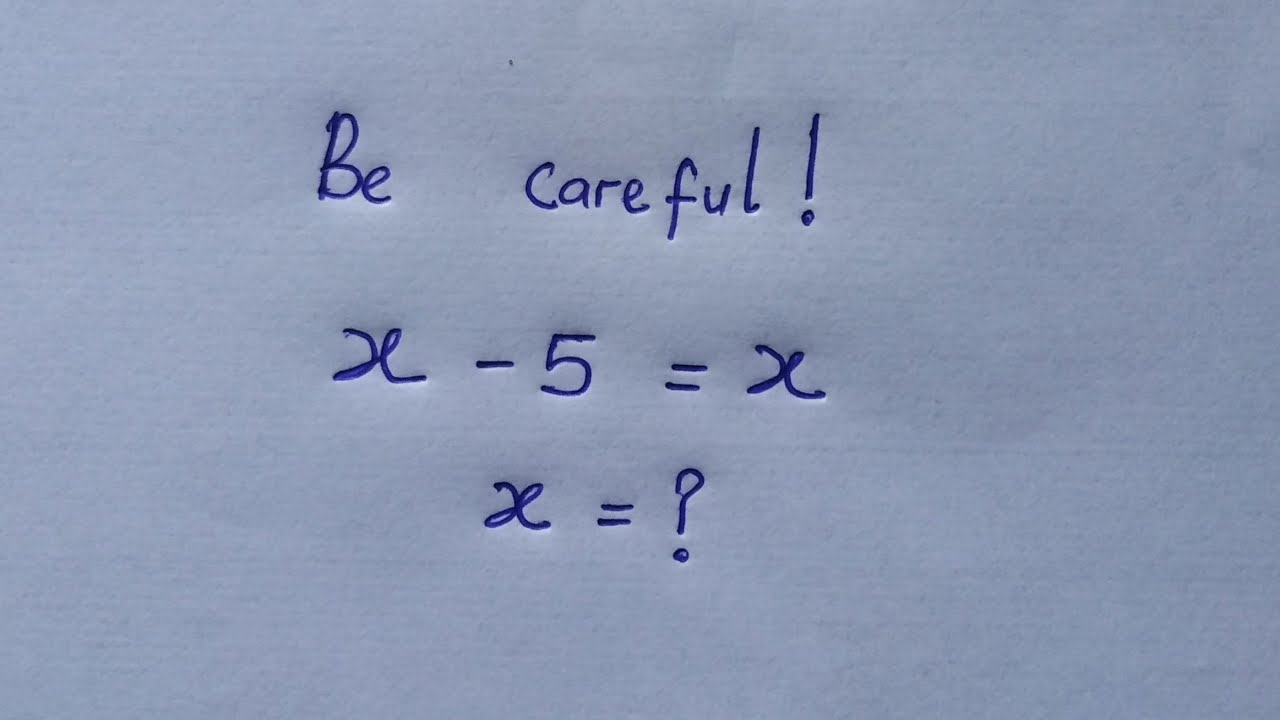 Be careful!
x - 5 = x
x = ?